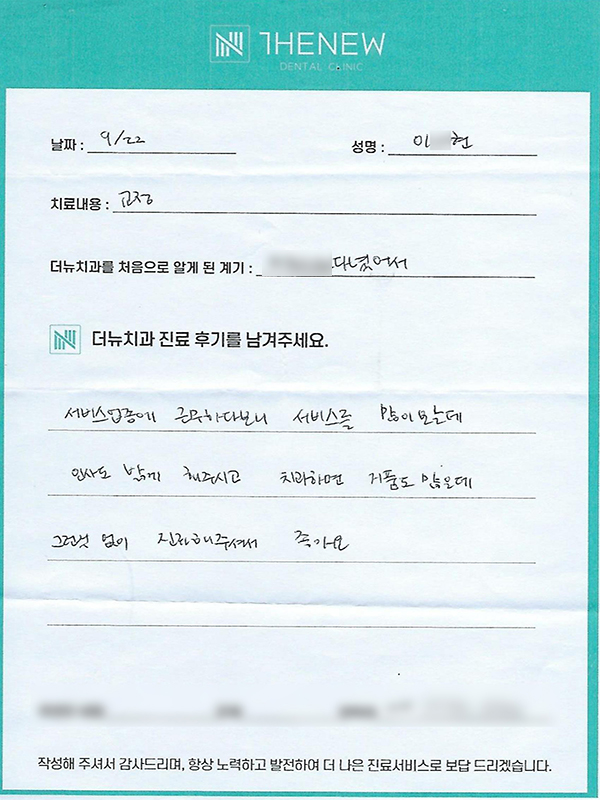 THENEW
DENTAL CLINIC
날짜 : 9/22
성명 : 이 현
치료내용 : 교정
더뉴치과를 처음으로 알게 된 계기 : 다녔어서
더뉴치과 진료 후기를 남겨주세요.
서비스업종에 근무하다보니 서비스를 많이 보는데
인사도 밝게 해주시고 치과하면 거품도 많은데
그런것 없이 진료해주셔서 좋아요
작성해 주셔서 감사드리며, 항상 노력하고 발전하여 더 나은 진료서비스로 보답 드리겠습니다.